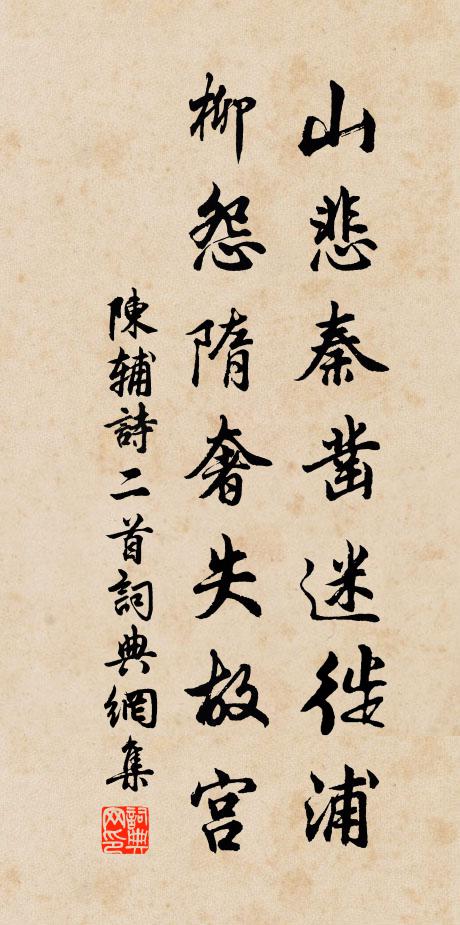 山悲秦凿迷徙浦
柳怨隋奢失故宫
陳辅詩二首詞典網集
詞典網印